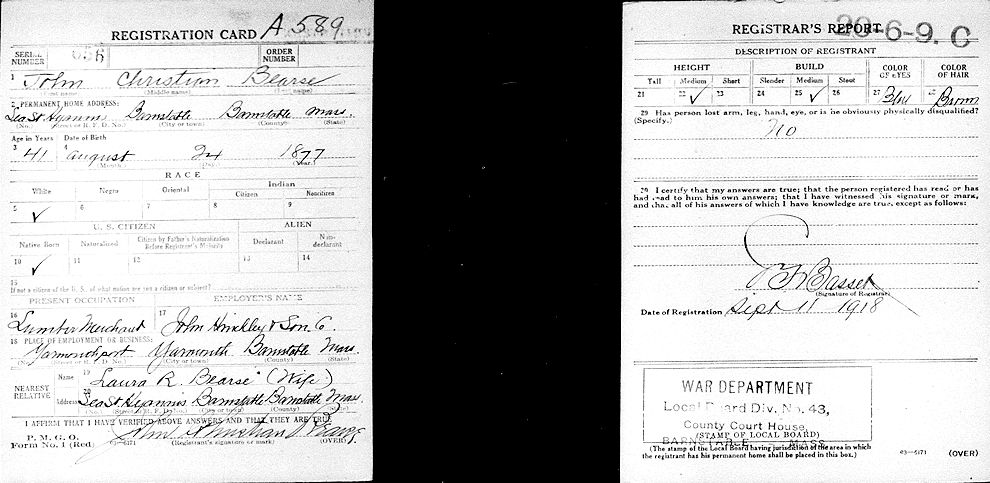 REGISTRATION CARD A 589
SERIAL NUMBER 656 ORDER NUMBER
1 John Christian Bearse
(First name) (Middle name) (Last name)
2 PERMANENT HOME ADDRESS:
Sea St Hyannis Barnstable Barnstable Mass.
(No.) (Street or R. F. D. No.) (City or town) (County) (State)
Age in Years Date of Birth
3 41 4 August 24 1877
(Month.) (Day.) (Year.)
RACE
White Negro Oriental Indian
Citizen Noncitizen
5 ✓ 6 7 8 9
U. S. CITIZEN ALIEN
Native Born Naturalized Citizen by Father's Naturalization Before Registrant's Majority Declarant Non-declarant
10 ✓ 11 12 13 14
15
If not a citizen of the U. S., of what nation are you a citizen or subject?
PRESENT OCCUPATION EMPLOYER'S NAME
16 Lumber Merchant 17 John Hinckley & Son Co.
18 PLACE OF EMPLOYMENT OR BUSINESS:
Yarmouthport Yarmouth Barnstable Mass.
(No.) (Street or R. F. D. No.) (City or town) (County) (State)
NEAREST RELATIVE
Name 19 Laura R. Bearse (Wife)
Address 20 Sea St Hyannis Barnstable Barnstable Mass.
(No.) (Street or R. F. D. No.) (City or town) (County) (State)
I AFFIRM THAT I HAVE VERIFIED ABOVE ANSWERS AND THAT THEY ARE TRUE
P. M. G. O.
Form No. 1 (Red) John Christian Bearse
(Registrant's signature or mark) (OVER)
REGISTRAR'S REPORT 20-6-9. C
DESCRIPTION OF REGISTRANT
HEIGHT BUILD COLOR OF EYES COLOR OF HAIR
Tall Medium Short Slender Medium Stout
21 22 ✓ 23 24 25 ✓ 26 27 Blue 28 Brown
29 Has person lost arm, leg, hand, eye, or is he obviously physically disqualified?
(Specify.) No
30 I certify that my answers are true; that the person registered has read or has
had read to him his own answers; that I have witnessed his signature or mark,
and that all of his answers of which I have knowledge are true, except as follows:
Bassett
(Signature of Registrar)
Date of Registration Sept 11 1918
WAR DEPARTMENT
Local Board Div. No. 43,
County Court House,
(STAMP OF LOCAL BOARD)
BARNSTABLE MASS.
(The stamp of the Local Board having jurisdiction of the area in which
the registrant has his permanent home shall be placed in this box.)
03—6171 (OVER)